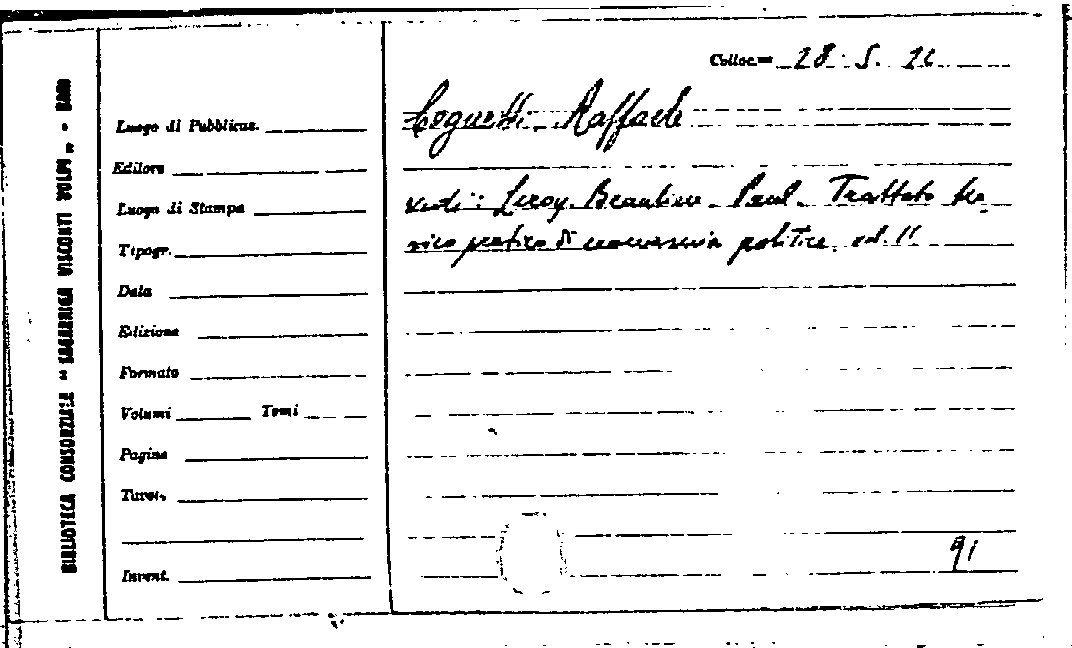 BIBLIOTECA CONSORZIALE "SAGARRIGA VISCONTI VOLPI" - BARI
Colloc.ne 28. S. 21
Cognetti Raffaele
vedi: Leroy-Beaulieu Paul - Trattato teo-
rico pratico di economia politica vol. II
Luogo di Pubblicaz.
Editore
Luogo di Stampa
Tipogr.
Data
Edizione
Formato
Volumi Tomi
Pagine
Invent.
91